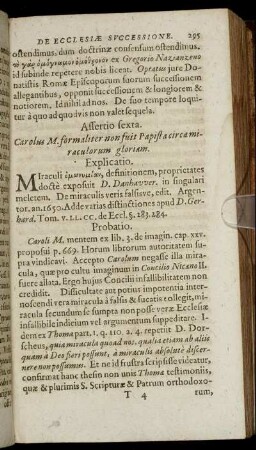 DE ECCLESIÆ SVCCESSIONE. 295
ostendimus, dum doctrinæ consensum ostendimus.
τὸ γὰρ ὁμόγνωμον ὁμόθρονον ex Gregorio Nazianzeno
id subinde repetere nobis licent. Optatus jure Do-
natistis Romæ Episcoporum suorum successionem
allegantibus, opponit successionem & longiorem &
notiorem. Id nihil ad nos. De suo tempore loqui-
tur à quo ad quodvis non valet sequela.
Assertio sexta.
Carolus M. formaliter non fuit Papista circa mi-
raculorum gloriam.
Explicatio.
Miraculi definitionem, proprietates
doctè exposuit D. Danhavver. in singulari
meletem. De miraculis veris falsisve, edit. Argen-
tor. an. 1650. Adde varias distinctiones apud D. Ger-
hard. Tom. V. LL. CC. de Eccl. §. 283. 284.
Probatio.
Caroli M. mentem ex lib. 3. de imagin. cap. XXV.
proposui p. 669. Horum librorum autoritatem su-
pra vindicavi. Accepto Carolum negasse illa mira-
cula, quæ pro cultu imaginum in Concilio Nicæno II.
fuere allata. Ergo hujus Concilii infallibilitatem non
credidit. Difficultate aut potius impotentia inter-
noscendi vera miracula à falsis & fucatis collegit, mi-
racula secundum se sumpta non posse veræ Ecclesiæ
infallibile indicium vel argumentum suppeditare. I-
dem ex Thoma part. 1. q. 110. a. 4. repetit D. Dor-
scheus, quia miracula quoad nos, qualia etiam ab aliis
quam à Deo fieri possunt, à miraculis absolutè discer-
nere non possumus. Et ne id frustra scripsisse videatur,
confirmat hanc thesin non unis Thomæ testimoniis,
quæ & plurimis S. Scripturæ & Patrum orthodoxo-
T 4 rum,